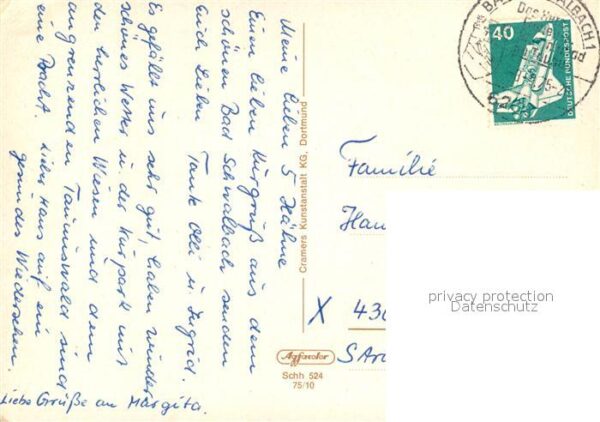 Meine lieben 5 Hähne
Einen lieben Kurgruß aus dem
schönen Bad Schwalbach senden
Euch Lieben Tante Olli u. Ingrid.
Es gefällt uns sehr gut, haben wieder
schönes Wetter u. der Kurpark mit
den herrlichen Wiesen und dem
angrenzenden Taunuswald sind
eine Pracht. Lieber Hans auf ein
gesundes Wiedersehen.
Liebe Grüße an Margita.
Cramers Kunstanstalt KG, Dortmund
Agfacolor
Schh 524
75/10
BAD SCHWALBACH 1
40
DEUTSCHE BUNDESPOST
Familie
Han
X 430
privacy protection
Datenschutz